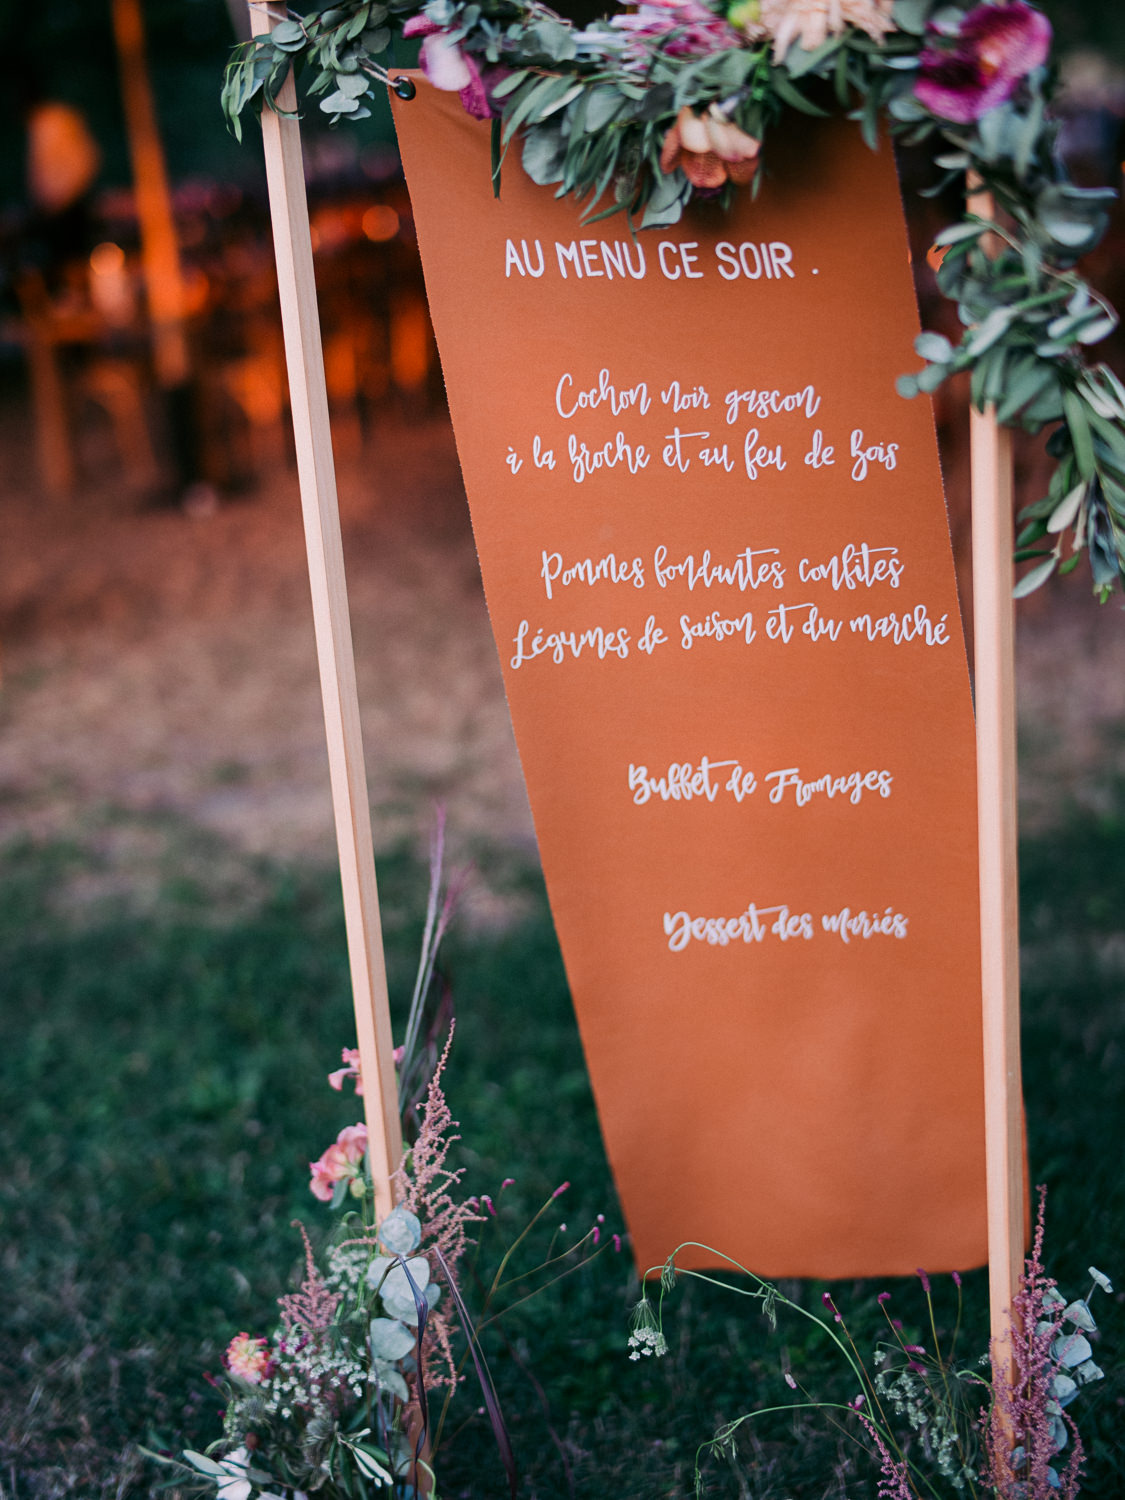 AU MENU CE SOIR .
Cochon noir gascon
à la broche et au feu de bois
Pommes fondantes confites
Légumes de saison et du marché
Buffet de Fromages
Dessert des mariés